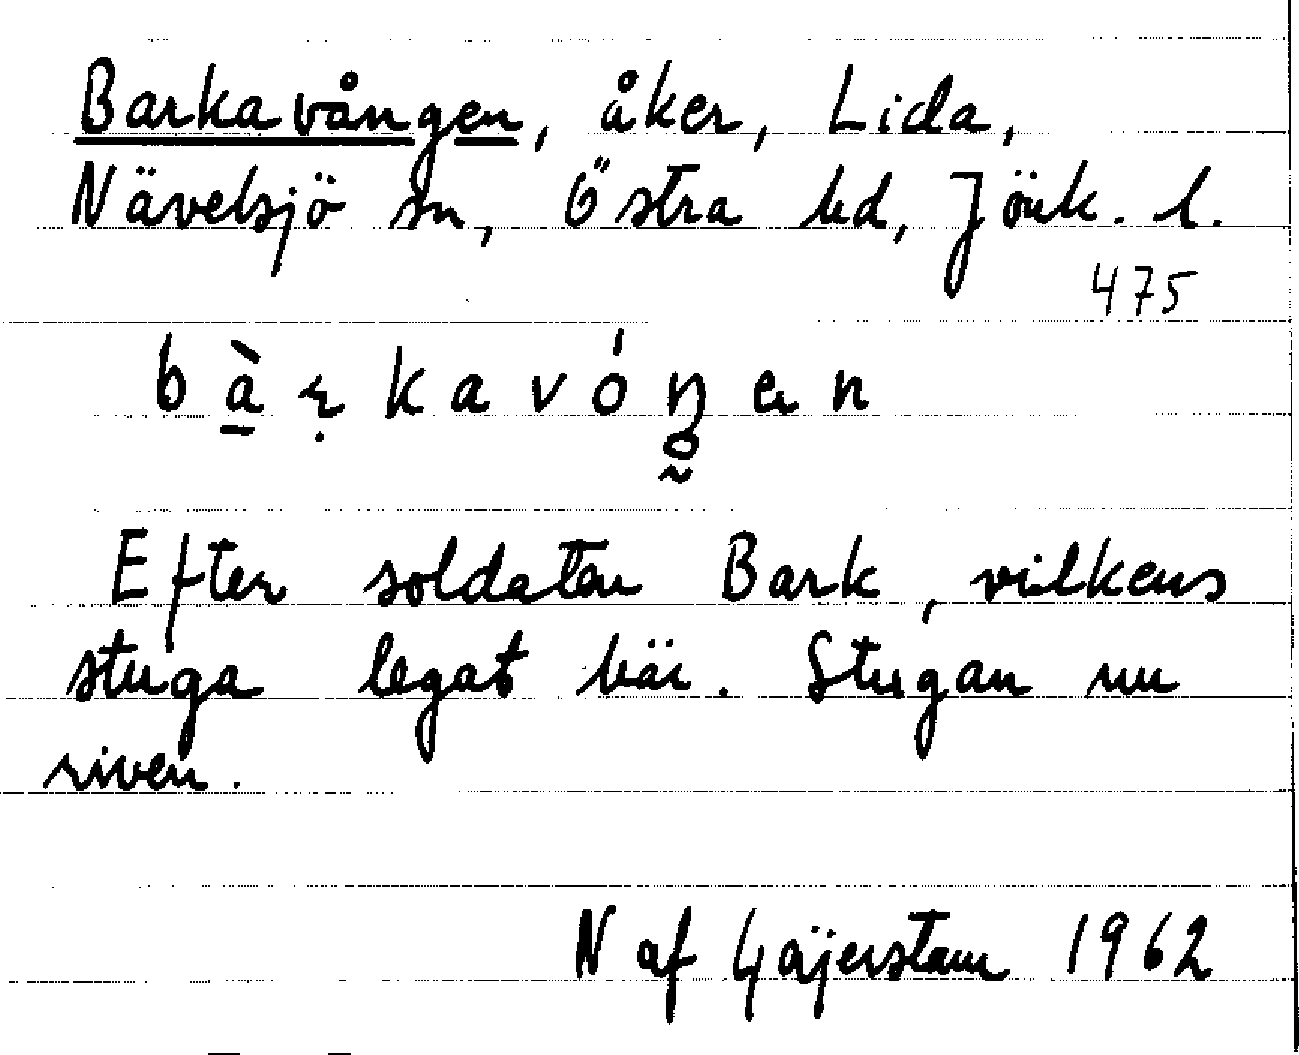 Barkavången, åker, Lida,
Nävelsjö sn, Östra hd, Jönk. l.
475
bàrkavóŋen
Efter soldaten Bark, vilkens
stuga legat här. Stugan nu
riven.
N af Gäjerstam 1962